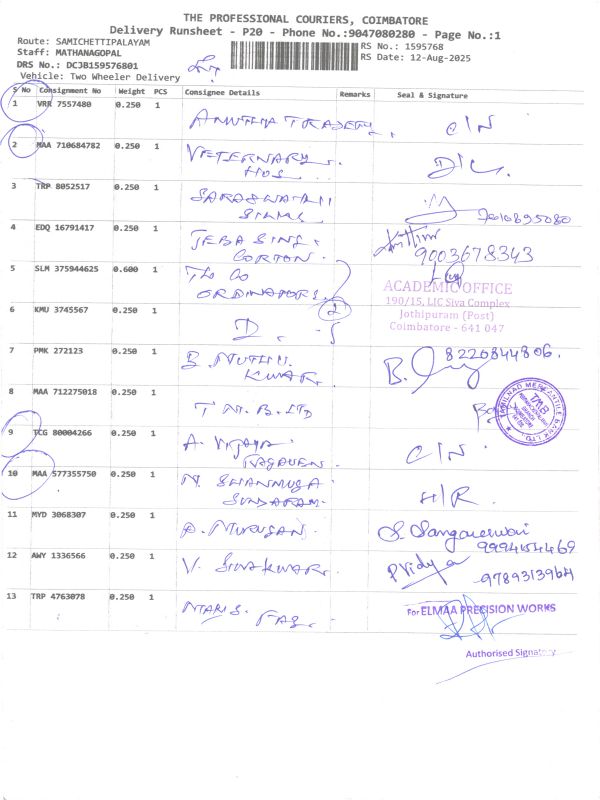 THE PROFESSIONAL COURIERS, COIMBATORE
Delivery Runsheet - P20 - Phone No.:9047080280 - Page No.:1
Route: SAMICHETTIPALAYAM
RS No.: 1595768
Staff: MATHANAGOPAL
RS Date: 12-Aug-2025
DRS No.: DCJB159576801
Vehicle: Two Wheeler Delivery
S No Consignment No Weight PCS Consignee Details Remarks Seal & Signature
1 VRR 7557480 0.250 1
C/N
2 MAA 710684782 0.250 1 VETERNARY
HOS
D/L
3 TRP 8052517 0.250 1 SARASWATHI
4 EDQ 16791417 0.250 1 JEBA SING
9003678343
5 SLM 375944625 0.600 1 The CO
ORDINATORS
2
ACADEMIC OFFICE
190/15, LIC Siva Complex
Jothipuram (Post)
Coimbatore - 641 047
6 KMU 3745567 0.250 1 D.
7 PMK 272123 0.250 1 B. MUTHU
KUMAR
B.
8220844806.
8 MAA 712275018 0.250 1 T M.B. LTD
TAMILNAD MERCANTILE BANK LTD.
TMB
9 TCG 80004266 0.250 1 A. VIJAYA
RAGAVEN
C/N
10 MAA 577355750 0.250 1 N. SHANMUGA
SUNDARAM
H/R.
11 MYD 3068307 0.250 1 MURUGAN
S. Sangareswari
12 AWY 1336566 0.250 1 V. SIVAKUMAR
P Vidya
9789313964
13 TRP 4763078 0.250 1
For ELMAA PRECISION WORKS
Authorised Signatory